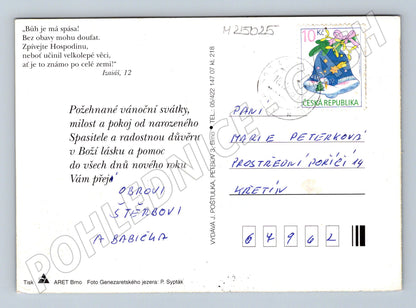 „Bůh je má spása!
Bez obavy mohu doufat.
Zpívejte Hospodinu,
neboť učinil velkolepé věci,
ať je to známo po celé zemi!"
Izaiáš, 12
Požehnané vánoční svátky,
milost a pokoj od narozeného
Spasitele a radostnou důvěru
v Boží lásku a pomoc
do všech dnů nového roku
Vám přejí
OBROVI
ŠTĚRBOVI
A BABIČKA
Tisk ARET Brno Foto Genezaretského jezera: P. Sypták
VYDAVA J. POŠTULKA, PETRSKÝ 3, Brno • TEL.: 05/422 147 07 kl. 218
M215025
10 Kč
ČESKÁ REPUBLIKA
PANÍ
MARIE PETERKOVÁ
PROSTŘEDNÍ POŘÍČÍ 14
KŘETÍN
67962
POHLEDNICE-CECH